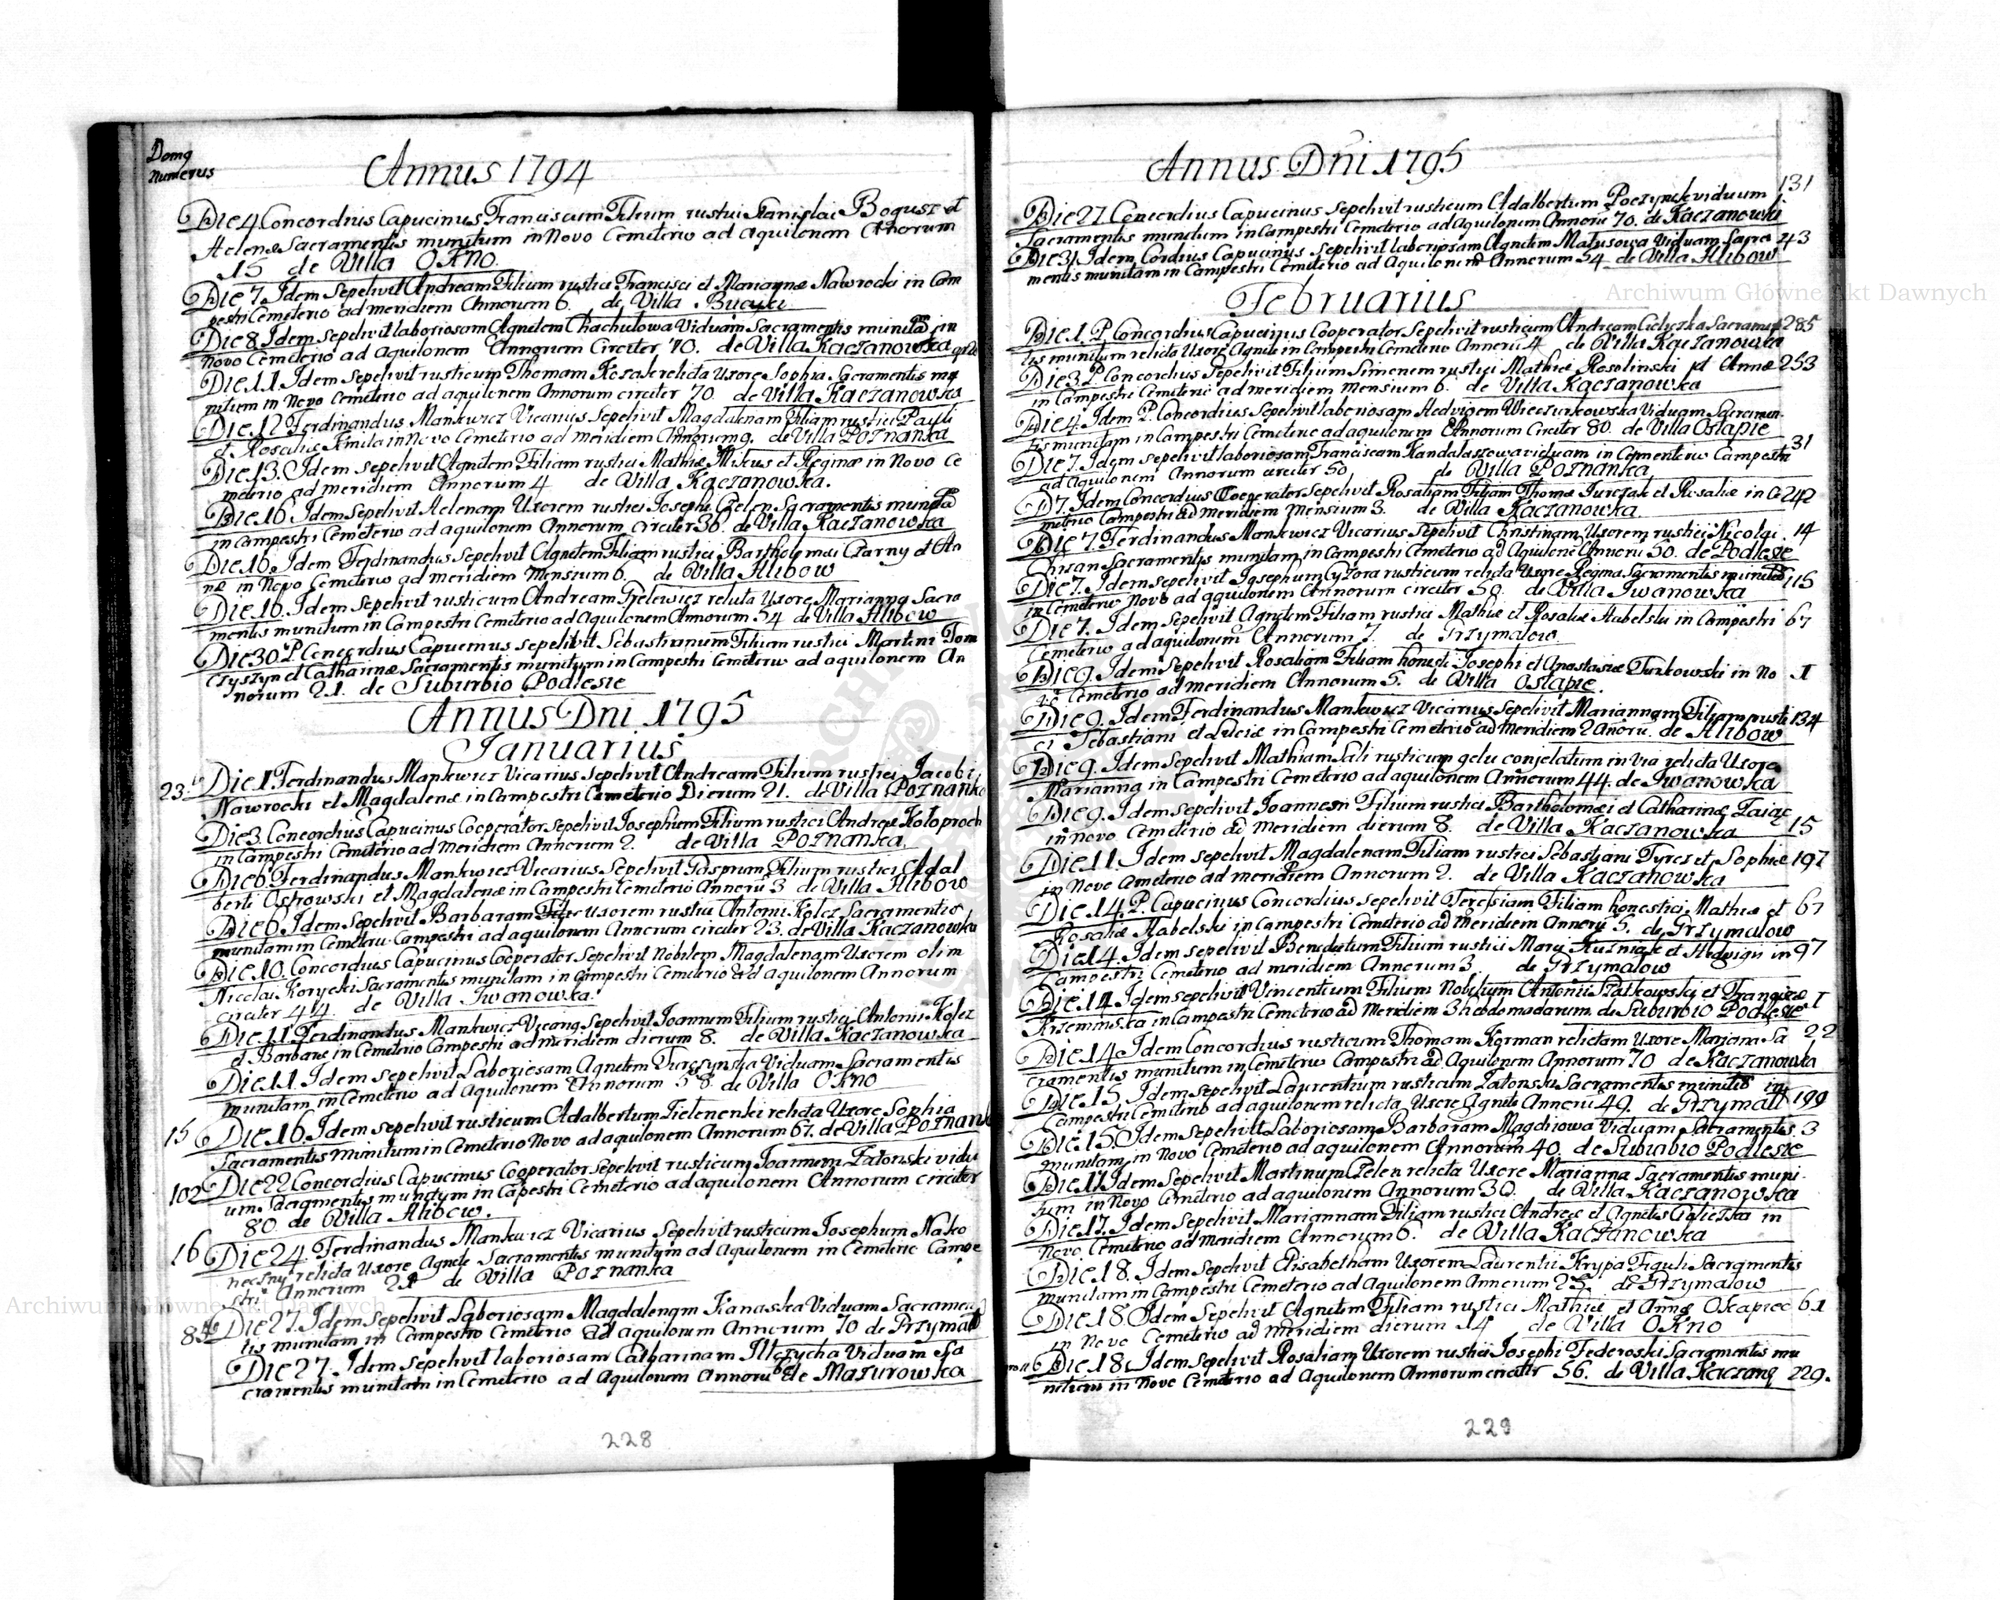 Domq
Numerus
Annus 1794
Die 4 Concordius Capucinus Franciscum Filium rustici Stanislai Bogusz et
Helenæ Sacramentis munitum in Novo Cemeterio ad aquilonem Annorum
15 de Villa OKno
Die 7 Idem Sepelivit Andream Filium rustici Francisci et Mariannæ Nawrocki in Cam
pestri Cemeterio ad meridiem Annorum 6. de Villa Bucyki
Die 8 Idem Sepelivit laboriosam Agnetem Chachulowa Viduam Sacramentis munitam in
Novo Cemeterio ad aquilonem Annorum Circiter 70. de Villa Kaczanowka
Die 11. Idem Sepelivit rusticum Thomam Kosak relicta Uxore Sophia Sacramentis mu
nitum in Novo Cemeterio ad aquilonem Annorum circiter 70. de Villa Kaczanowka
Die 12 Ferdinandus Mankwicz Vicarius Sepelivit Magdalenam Filiam rustici Pauli
et Rosaliæ Kmila in Novo Cemeterio ad meridiem Annorum 9. de Villa Poznanka
Die 13. Idem Sepelivit Agnetem Filiam rustici Mathiæ Mikus et Reginæ in Novo Ce
meterio ad meridiem Annorum 4 de Villa Kaczanowka.
Die 16 Idem Sepelivit Helenam Uxorem rustici Josephi Czelen Sacramentis munitam
in Campestri Cemeterio ad aquilonem Annorum circiter 36. de Villa Kaczanowka
Die 16. Idem Ferdinandus Sepelivit Agnetem Filiam rustici Bartholomæi Czarny et An
næ in Novo Cemeterio ad meridiem Mensium 6. de Villa Hlibow
Die 16. Idem Sepelivit rusticum Andream Grelewicz relicta Uxore Marianna Sacra
mentis munitum in Campestri Cemeterio ad Aquilonem Annorum 54 de Villa Hlibow
Die 30. P. Concordius Capucinus sepelivit Sebastianum Filium rustici Martini Tom
czyszyn et Catharinæ Sacramentis munitum in Campestri Cemeterio ad aquilonem An
norum 21. de Suburbio Podlesie
Annus Dni 1795
Januarius
23. Die 1 Ferdinandus Mankwicz Vicarius Sepelivit Andream Filium rustici Jacobi
Nawrocki et Magdalenæ in Campestri Cemeterio Dierum 21. de Villa Poznanka
Die 3 Concordius Capucinus Cooperator Sepelivit Josephum Filium rustici Andreæ Koloproch
in Campestri Cemeterio ad Meridiem Annorum 2. de Villa Poznanka
Die 6 Ferdinandus Mankwicz Vicarius Sepelivit Gasprum Filium rustici Adal
berti Ostrowski et Magdalenæ in Campestri Cemeterio Annoru 3 de Villa Hlibow
Die 6 Idem Sepelivit Barbaram Uxorem rustici Antoni Kolcz Sacramentis
munitam in Cemeterio Campestri ad aquilonem Annorum circiter 23. de Villa Kaczanowka
Die 10. Concordius Capucinus Cooperator Sepelivit Nobilem Magdalenam Uxorem olim
Nicolai Korycki Sacramentis munitam in Campestri Cemeterio ad aquilonem Annorum
circiter 44. de Villa Iwanowka.
Die 11 Ferdinandus Mankwicz Vicarius Sepelivit Joannem Filium rustici Antonii Kolcz
et Barbaræ in Cemeterio Campestri ad meridiem dierum 8. de Villa Kaczanowka
Die 11. Idem sepelivit Laboriosam Agnetem Turczynska Viduam Sacramentis
munitam in Cemeterio ad Aquilonem Annorum 58. de Villa OKno
15 Die 16. Idem sepelivit rusticum Adalbertum Zielenenki relicta Uxore Sophia
Sacramentis munitum in Cemeterio Novo ad aquilonem Annorum 67. de Villa Poznanka
102 Die 22 Concordius Capucinus Cooperator sepelivit rusticum Joannem Zatonski vidu
um Sacramentis munitum in Capestri Cemeterio ad aquilonem Annorum circiter
80 de Villa Hlibow.
16 Die 24 Ferdinandus Mankwicz Vicarius Sepelivit rusticum Josephum Nako
neczny relicta Uxore Agnete Sacramentis munitum ad Aquilonem in Cemeterio Campe
stri Annorum 21 de Villa Poznanka
Die 27. Idem Sepelivit Laboriosam Magdalenam Kanaska Viduam Sacramen
tis munitam in Campestro Cemeterio ad aquilonem Annorum 70 de Przymall
Die 27. Idem Sepelivit laboriosam Catharinam Viduam Sa
cramentis munitam in Cemeterio ad Aquilonem Annoru de Mazurowka
228
Annus Dni 1795
Die 27 Concordius Capucinus Sepelivit rusticum Adalbertum Poczynek viduum 131
Sacramentis munitum in Campestri Cemeterio ad aquilonem Annoru 70. de Kaczanowka
Die 31 Idem Cordius Capucinus Sepelivit laboriosam Agnetem Matusowa Viduam Sacra 43
mentis munitam in Campestri Cemeterio ad Aquilonem Annorum 54 de Villa Hlibow
Februarius
Die 1. P. Concordius Capucinus Cooperator Sepelivit rusticum Andream Cieliczka Sacramen 285
tis munitum relicta Uxore Agnete in Campestri Cemeterio Annoru 4 de Villa Kaczanowka
Die 3 P. Concordius Sepelivit Filium Simonem rustici Mathiæ Rosolinski et Annæ 253
in Campestri Cemeterio ad meridiem Mensium 6. de Villa Kaczanowka
Die 4 Idem P. Concordius Sepelivit laboriosam Hedvigem Wieczurkowska Viduam Sacramen
tis munitam in Campestri Cemeterio ad aquilonem Annorum Circiter 80. de Villa Ostapie
Die 7. Idem sepelivit laboriosam Franciscam Kandalaszowa viduam in Cementerio Campestri 31
ad Aquilonem Annorum circiter 50 de Villa Poznanka
D 7. Idem Concordius Cooperator Sepelivit Rosaliam Filiam Thomæ Jurczak et Rosaliæ in Ce 242
meterio Campestri ad Meridiem Mensium 3. de Villa Kaczanowka
Die 7. Ferdinandus Mankwicz Vicarius Sepelivit Christinam Uxorem rustici Nicolai 14
Chisan Sacramentis munitam in Campestri Cemeterio ad Aquilone Annoru 50. de Podlesie
Die 7. Idem sepelivit Josephum Cyzora rusticum relicta Uxore Regina Sacramentis munitum 115
in Cemeterio Novo ad aquilonem Annorum circiter 50. de Villa Iwanowka
Die 7. Idem Sepelivit Agnetem Filiam rustici Mathiæ et Rosaliæ Habelski in Campestri 67
Cemeterio ad aquilonem Annorum 7. de Grzymalow
Die 9. Idem Sepelivit Rosaliam Filiam honesti Josephi et Anastasiæ Turkowski in No 1
vo Cemeterio ad meridiem Annorum 5. de Villa Ostapie.
Die 9. Idem Ferdinandus Mankwicz Vicarius Sepelivit Mariannam Filiam rusti 134
ci Sebastiani et Luciæ in Campestri Cemeterio ad Meridiem 2 Anoru. de Hlibow
Die 9. Idem Sepelivit Mathiam Sali rusticum gelu conjelatum in via relicta Uxore
Marianna in Campestri Cemeterio ad aquilonem Annorum 44. de Iwanowka
Die 9. Idem sepelivit Joannem Filium rustici Bartholomæi et Catharinæ Zaiąc
in Novo Cemeterio ad Meridiem dierum 8. de Villa Kaczanowka 15
Die 11. Idem sepelivit Magdalenam Filiam rustici Sebastiani Tyrcz et Sophiæ 197
in Novo Cmeterio ad meridiem Annorum 2. de Villa Kaczanowka
Die 14. P. Capucinus Concordius sepelivit Teressiam Filiam honestici Mathiæ et 67
Rosaliæ Habelski in Campestri Cemeterio ad Meridiem Annoru 5. de Grzymalow
Die 14. Idem sepelivit Benedictum Filium rustici Marci Kuzniak et Hedvigis in 97
Campestri Cemeterio ad meridiem Annorum 3 de Grzymalow
Die 14 Idem sepelivit Vincentium Filium Nobilium Antonii Piatkowski et Franciscæ 1
Krzeminska in Campestri Cemeterio ad Meridiem 3 hebdomadarum. de Suburbio Podlesie
Die 14 Idem Concordius rusticum Thomam Korman relictam Uxore Mariana Sa 22
cramentis munitum in Cemeterio Campestri ad Aquilonem Annorum 70 de Kaczanowka
Die 15. Idem sepelivit Laurentium rusticum Zatonski Sacramentis munitum in
Campestri Cemeterio ad aquilonem relicta Uxore Agnete Annoru 49. de Grzymall 199
Die 15. Idem Sepelivit Laboriosam Barbaram Magdziowa Viduam Sacramentis 3
munitam in Novo Cemeterio ad aquilonem Annorum 40. de Suburbio Podlesie
Die 17 Idem Sepelivit Martinum Czelen relicta Uxore Marianna Sacramentis muni
tum in Novo Cmeterio ad aquilonem Annorum 30. de Villa Kaczanowka
Die 17. Idem Sepelivit Mariannam Filiam rustici Andreæ et Agnetis Galiczka in
Novo Cemeterio ad Meridiem Annorum 6. de Villa Kaczanowka
Die 18. Idem Sepelivit Elisabetham Uxorem Laurentii Krypa Figuli Sacramentis
munitam in Campestri Cemeterio ad Aquilonem Annorum 25. de Grzymalow
Die 18. Idem Sepelivit Agnetem Filiam rustici Mathiæ et Annæ Oscapiec 61
in Novo Cemeterio ad Meridiem dierum 14 de Villa OKno
Die 18 Idem Sepelivit Rosaliam Uxorem rustici Josephi Federoski Sacramentis mu
nitam in Novo Cemeterio ad Aquilonem Annorum circiter 56. de Villa Kaczang 229.
229
Archiwum Główne Akt Dawnych
Archiwum Główne Akt Dawnych